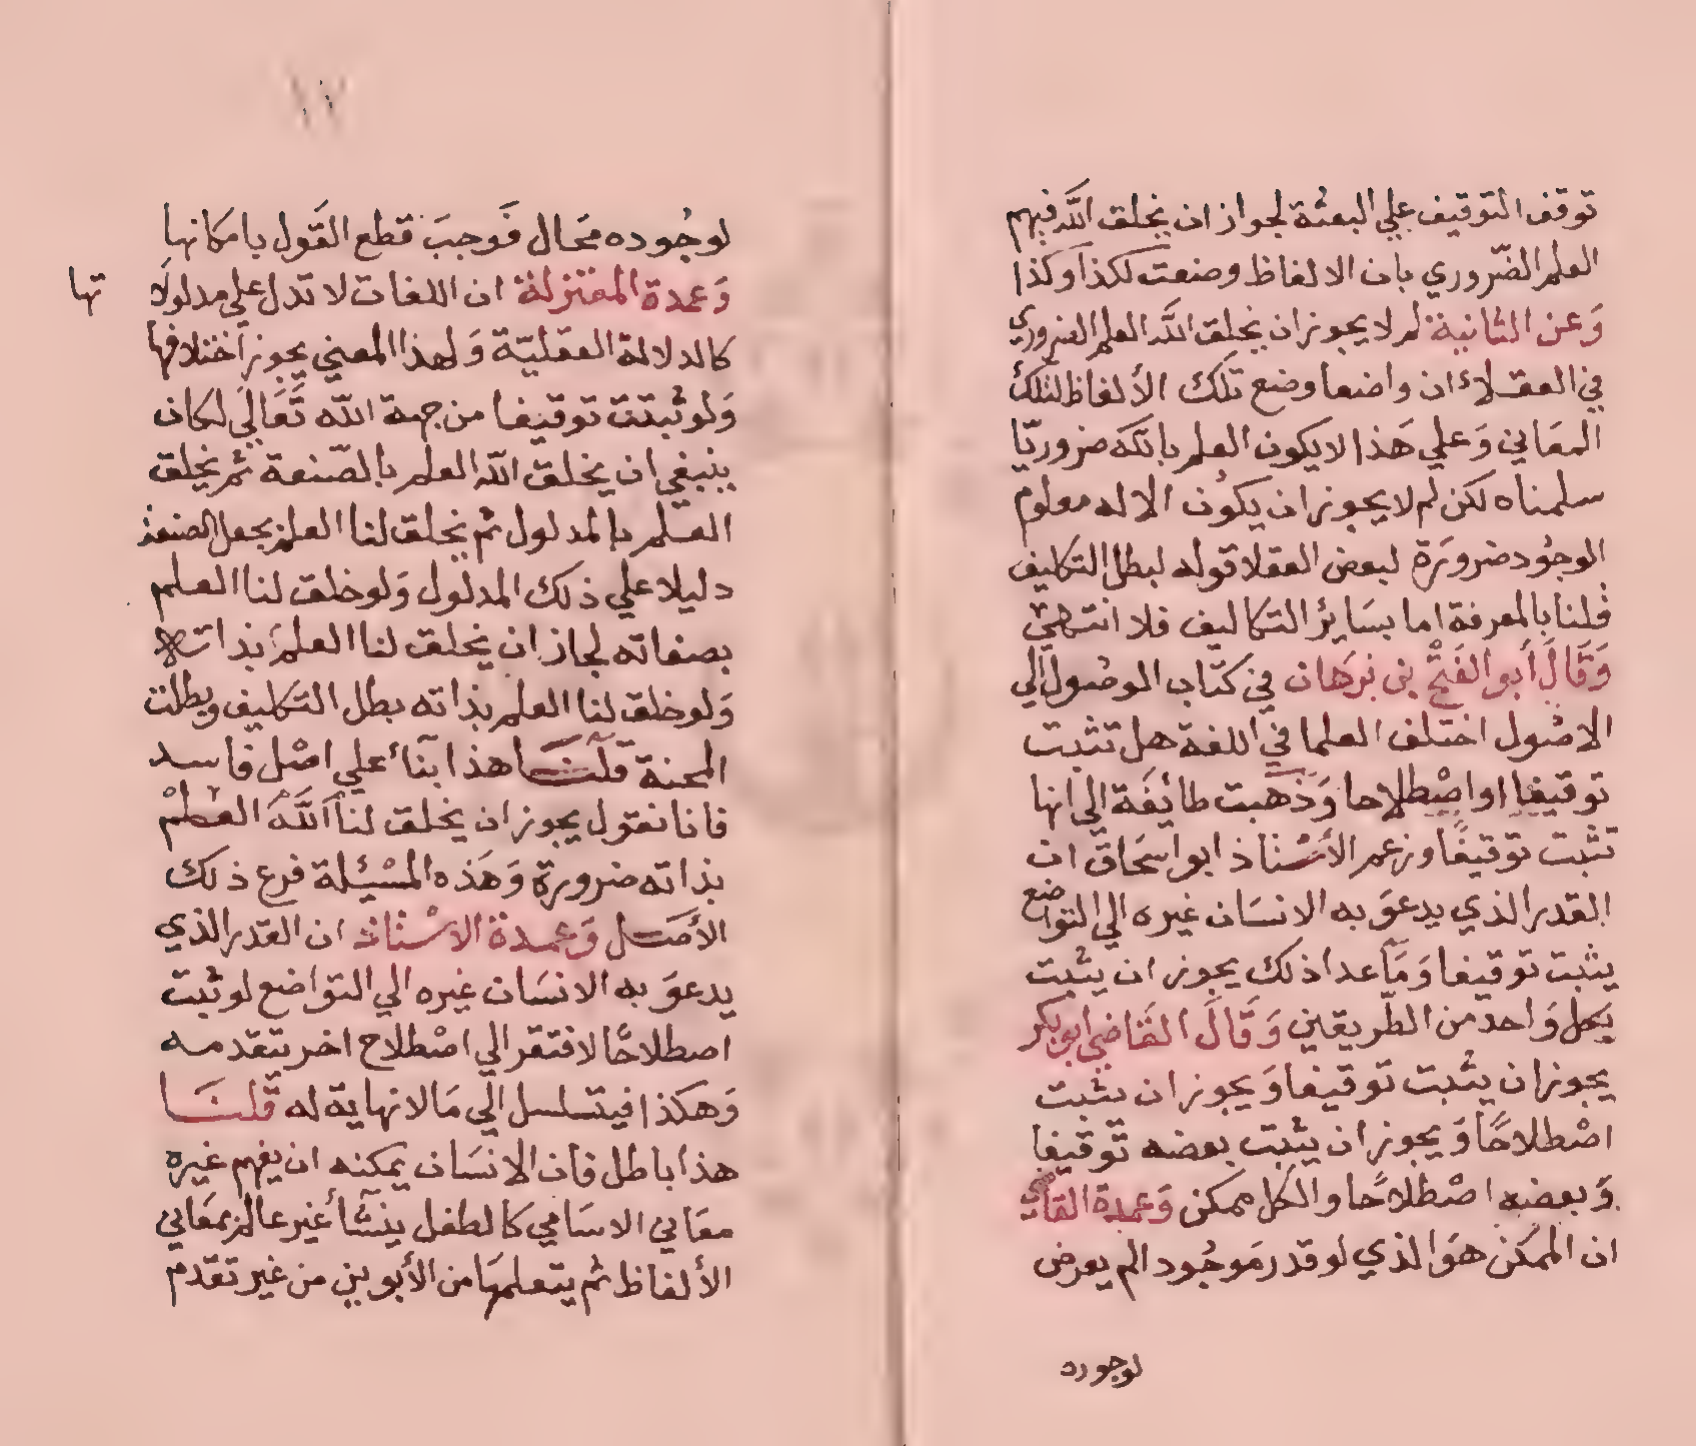 توقف التوقيف علي البعثة لجواز ان يخلق الله فيهم
العلم الضّروري بان الالفاظ وضعت لكذا وكذا
وَعن الثانية لم لا يجوز ان يخلق الله العلم الضروري
في العقلاء ان واضعا وضع تلك الألفاظ لتلك
المعَاني وَعلي هَذا لا يكون العلم بانه ضروريّا
سلمناه لكن لم لا يجوز ان يكون الاله معلوم
الوجُود ضرورَة لبعض العقلا قوله لبطل التكليف
قلنا بالمعرفة اما بسَائر التكاليف فلا انتهيٰ
وَقَالَ أبو الفَتْح بن برَهَان في كتاب الوصُول الي
الاصُول اختلف العلما في اللغة هل تثبت
توقيفا او اصْطلاحا وَذهبت طائفَة الي انها
تثبت توقيفًا وزعم الأسْتاذ ابو اسحَاق ان
القدر الذي يدعوَ به الانسَان غيره الي التواضع
يثبت توقيفا وَمَا عدا ذلك يجوز ان يثبت
بكل وَاحد من الطّريقين وَقَالَ القَاضي ابو بكر
يجوز ان يثبت توقيفا وَيجوز ان يثبت
اصْطلاحًا وَيجوز ان يثبت بعضه توقيفا
وَبعضه اصْطلاحًا والكل ممكن وَعمدة القاضي
ان الممكن هوَ الذي لو قدر مَوجُودا لم يعرض
لوجوده
١٧
لوجُوده محَال فَوجبَ قطع القَول بامكَانها
وَعمدة المعتزلة ان اللغات لا تدل علي مدلولا تها
كالدلالة العقليّة وَلهذا المعني يجوز اختلافها
وَلو ثبتت توقيفا من جهة الله تَعَالَي لكان
ينبغي ان يخلق الله العلم بالصّنعة ثم يخلق
العلم بالمدلول ثم يخلق لنا العلم بجعل الصنعة
دليلا علي ذلك المدلول وَلو خلق لنا العلم
بصفاته لجاز ان يخلق لنا العلمَ بذاته
وَلو خلق لنا العلم بذاته بطل التكليف وبطلت
المحنة قلنَا هذا بنَاء علي اصْل فاسد
فانا نقول يجوز ان يخلق لنا اَللَّه العلمْ
بذاته ضرورة وَهَذه المسْئلة فرع ذلك
الأصَل وَعمدة الاسْتاذ ان القدر الذي
يدعوَ به الانسَان غيره الي التواضع لو ثبت
اصطلاحًا لافتقر الي اصْطلاح اخر يتقدمه
وَهكذا فيتسلسل الَي مَالا نهاية له قلنَا
هذا باطل فان الانسَان يمكنه ان يفهم غيره
معَاني الاسَامي كالطفل ينشأ غير عالم بمعَاني
الألفاظ ثم يتعلمهَا من الأبوين من غير تقدم